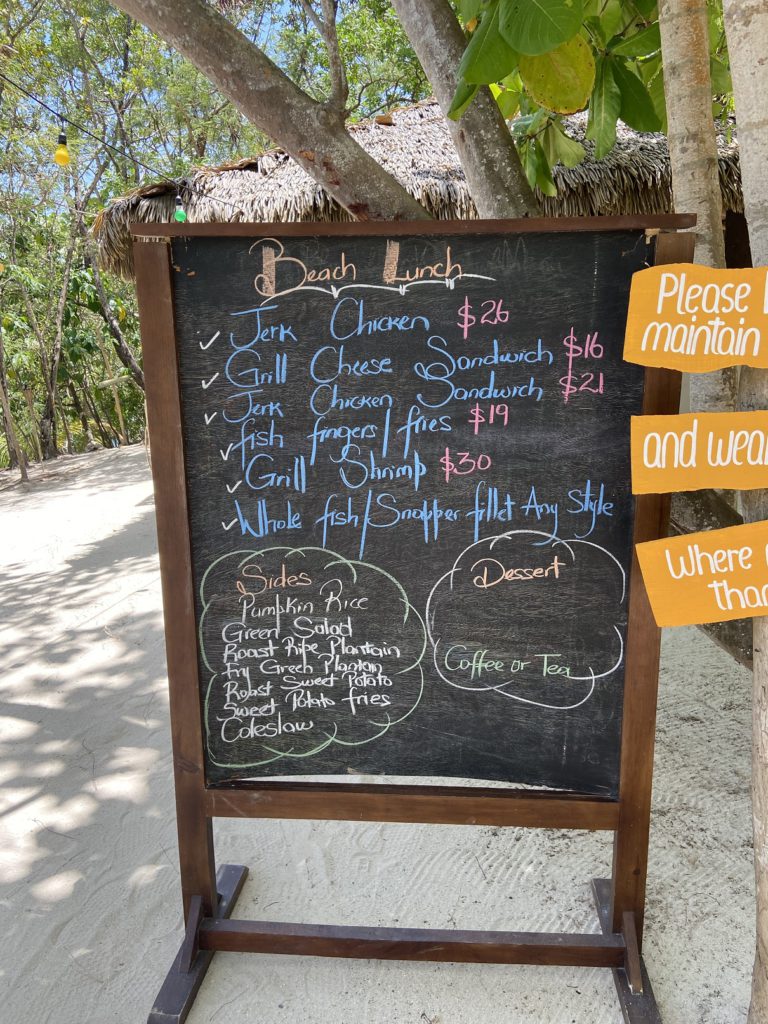 Beach Lunch
Jerk Chicken $26
Grill Cheese Sandwich $16
Jerk Chicken Sandwich $21
fish fingers/fries $19
Grill Shrimp $30
Whole fish/Snapper fillet Any Style
Sides
Pumpkin Rice
Green Salad
Roast Ripe Plantain
fry Green Plantain
Roast Sweet Potato
Sweet Potato fries
Coleslaw
Dessert
Coffee or Tea
Please
maintain
and wear
Where
than